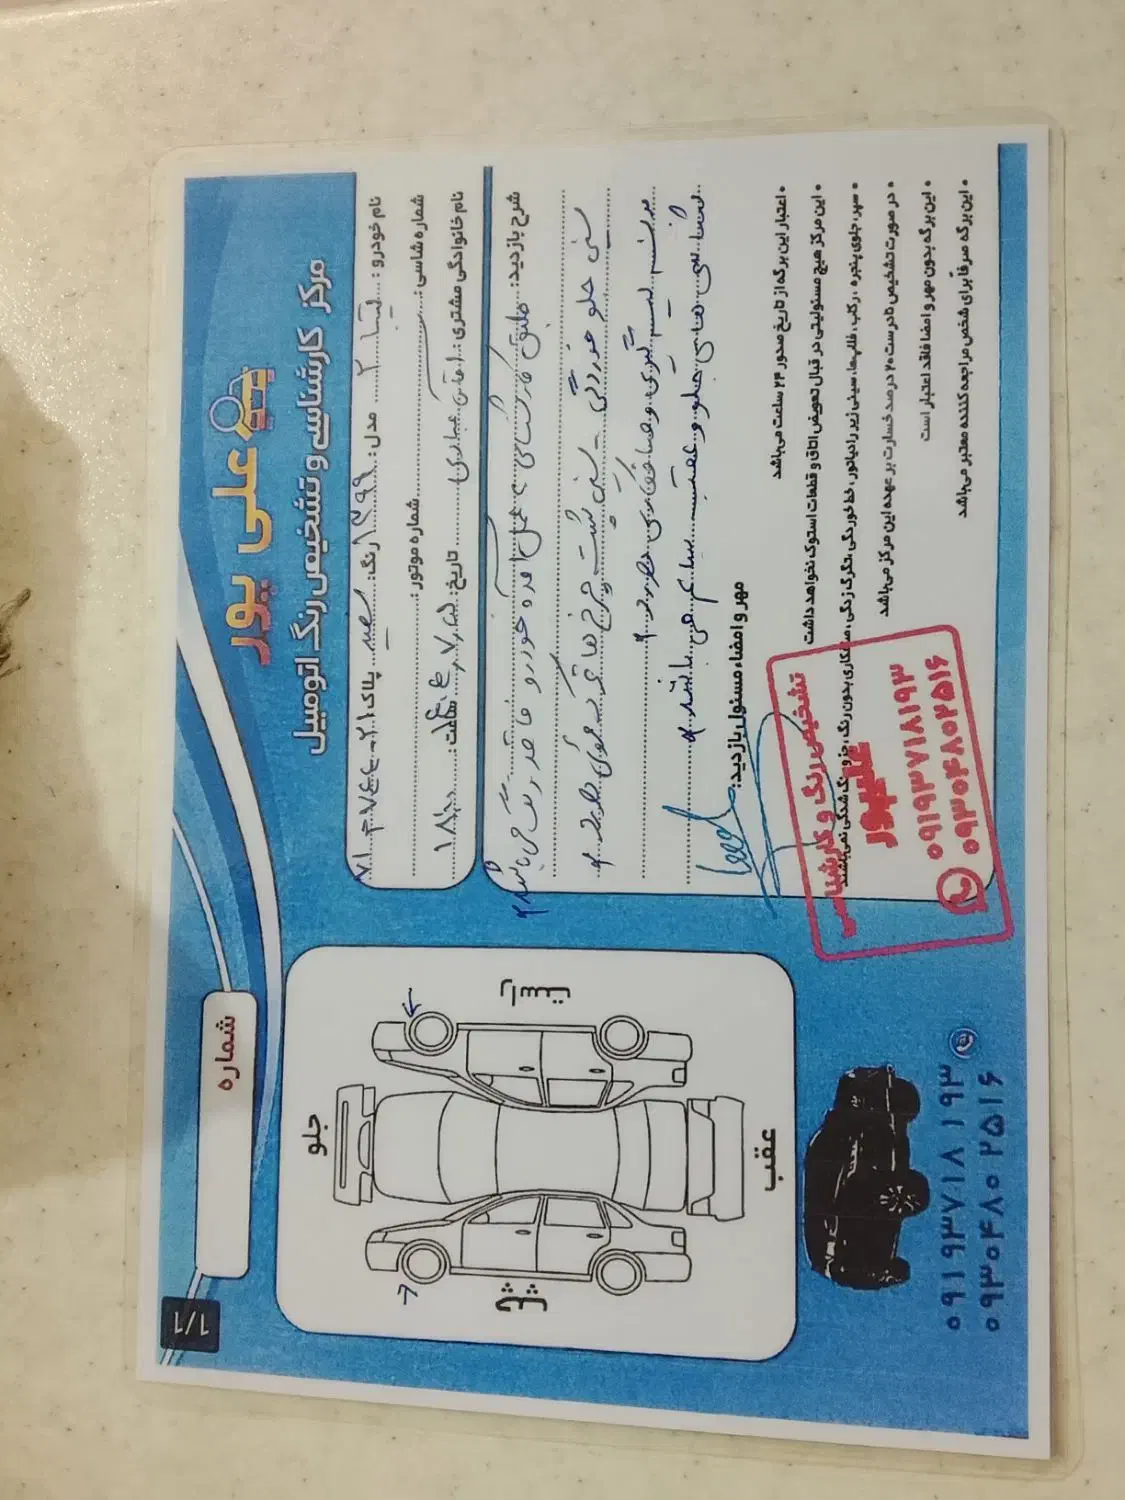 علی پور
مرکز کارشناسی و تشخیص رنگ اتومبیل
نام خودرو: تیبا ۲ مدل: ۱۳۹۹ رنگ: سفید پلاک:
شماره شاسی: شماره موتور:
نام خانوادگی مشتری: آقای تاریخ: ساعت:
شرح بازدید: طبق کارشناسی به عمل آمده خودرو فاقد رنگ می باشد
سینی جلو خوردگی سینی پشت چرخ های جلو
دارد
شاسی های جلو و عقب سالم می باشد
مهر و امضاء مسئول بازدید:
• اعتبار این برگه از تاریخ صدور ۲۴ ساعت می‌باشد
• این مرکز هیچ مسئولیتی در قبال تعویض اتاق و قطعات استوک نخواهد داشت
• سپر، جلوی پنجره، رکاب، قالپاها، سینی زیر رادیاتور، خط خوردگی، تگرگ زدگی، صافکاری بدون رنگ، جزو رنگ شدگی نمی‌باشند
• در صورت تشخیص نادرست ۲۰ درصد خسارت بر عهده این مرکز می‌باشد
• این برگه بدون مهر و امضا فاقد اعتبار است
• این برگه صرفاً برای شخص مراجعه کننده معتبر می‌باشد
تشخیص رنگ و کارشناسی
علیپور
۰۹۱۹۳۷۱۸۱۹۳
۰۹۳۰۵۴۸۰۲۵۱۶
شماره
1/1
جلو
عقب
۰۹۱۹۳۷۱۸۱۹۳
۰۹۳۰۵۴۸۰۲۵۱۶